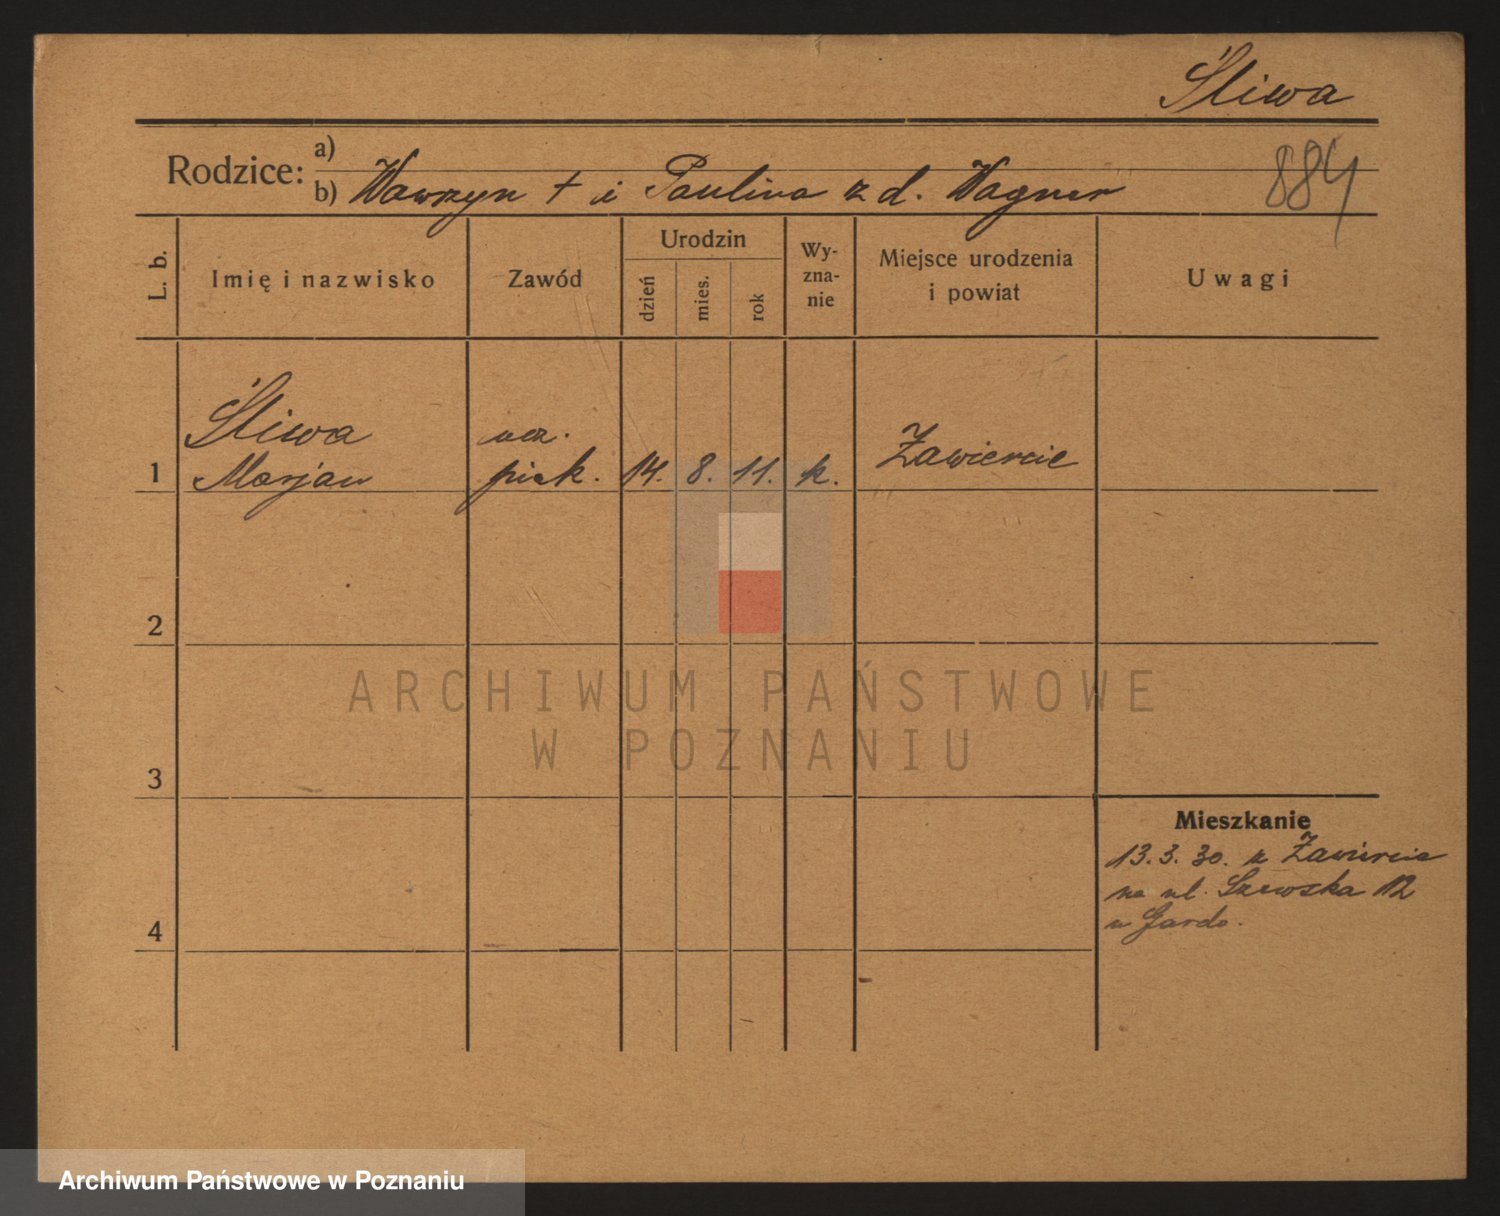 Śliwa
884
Rodzice: a)
b) Wawrzyn + i Paulina z d. Wagner
L. b.
Imię i nazwisko
Zawód
Urodzin
dzień
mies.
rok
Wy-
zna-
nie
Miejsce urodzenia
i powiat
Uwagi
Śliwa
ucz.
1 Marjan piek. 14. 8. 11. k. Zawiercie
2
ARCHIWUM PAŃSTWOWE
W POZNANIU
3
Mieszkanie
13.3.30. z Zawiercia
na ul. Szewska 12
u Gardo.
4
Archiwum Państwowe w Poznaniu